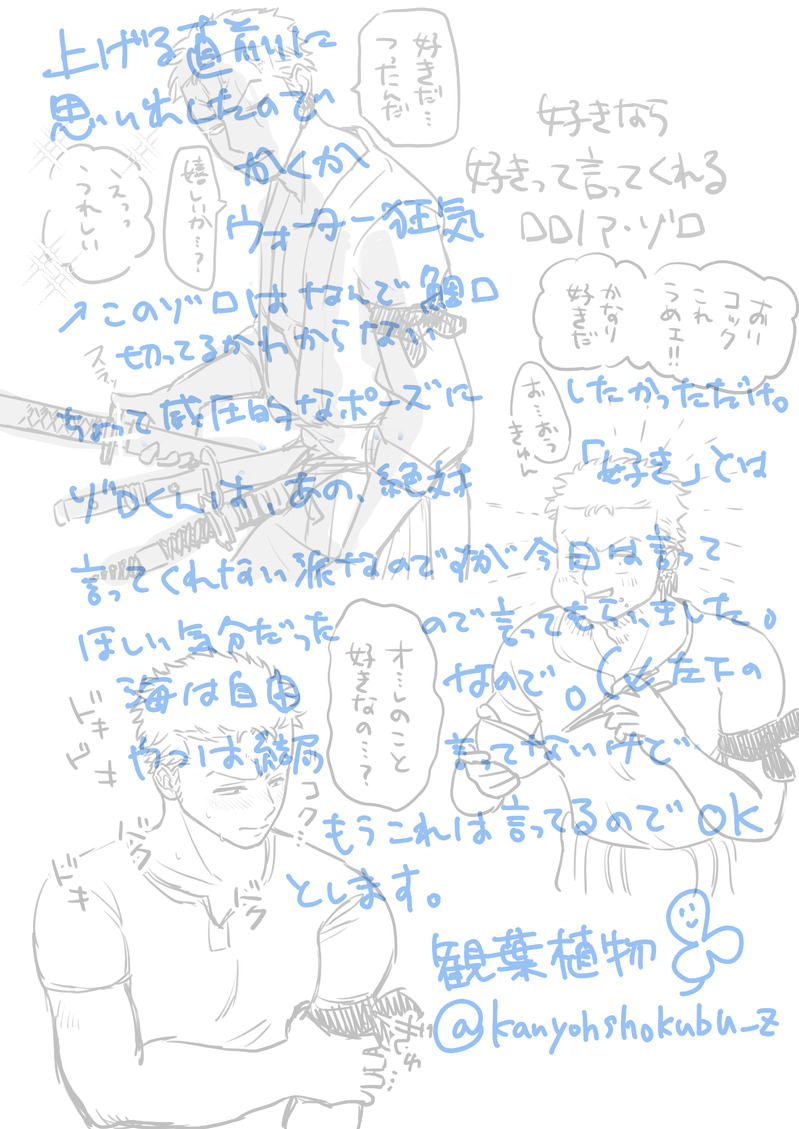 上げる直前に
思い出したので
かくか
ウォーター狂気
↗このゾロはなんで鯉口
切ってるかわからない
ちょって威圧的なポーズに
したかっただけ。
ゾロくんは、あの、絶対
「好き」とは
言ってくれない派なのですが今日は言って
ほしい気分だったので言ってもらいました。
海は自由なので。(↙左下の
やつは結局言ってないけど
もうこれは言ってるのでOK
とします。
観葉植物
@kanyohshokubu_z
好きだ…
つったんだ
嬉しいか…?
えっっ
うれしい
スラッ
好きなら
好きって言ってくれる
DD/ア・ゾロ
おい
コック
これ
うめェ!!
かなり
好きだ
お…おう
きゅん
オレのこと
好きなの…?
コク…
ドキ
ドキ
バク
バク
ドキ